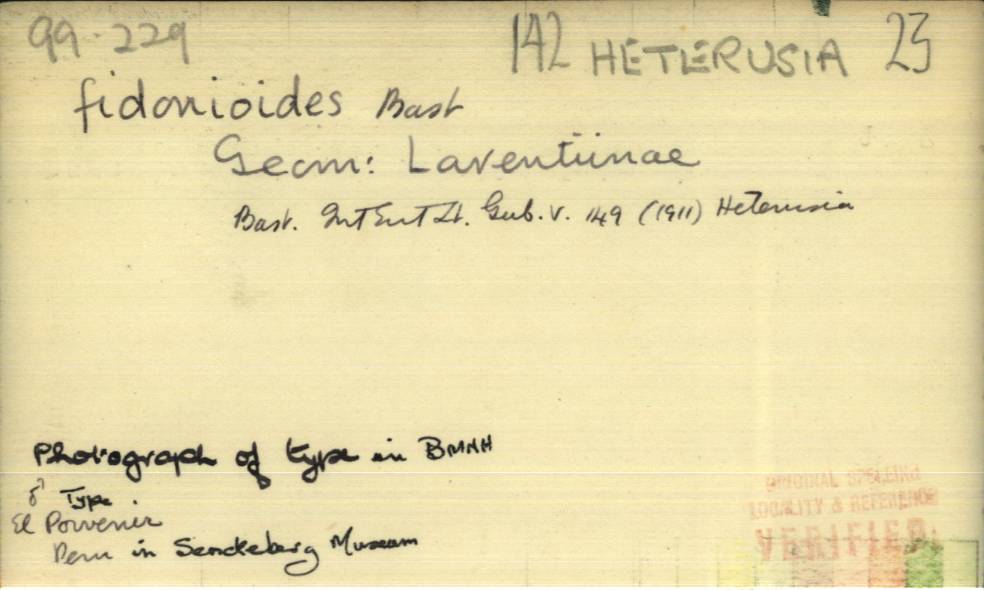 99-229 142 HETERUSIA 23
fidonioides Bast
Geom: Larentiinae
Bast. Int Ent Zt. Gub. v. 149 (1911) Heterusia
Photograph of type in BMNH
♂ Type.
El Porvenir
Peru in Senckeberg Museum
ORIGINAL SPELLING
LOCALITY & REFERENCE
VERIFIED